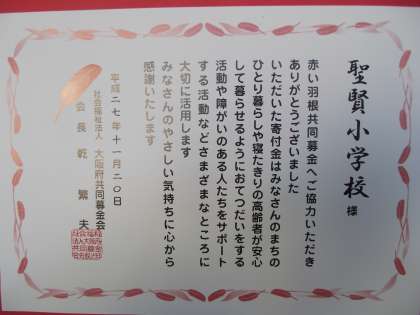 聖賢小学校 様
赤い羽根共同募金へご協力いただき
ありがとうございました
いただいた寄付金はみなさんのまちの
ひとり暮らしや寝たきりの高齢者が安心
して暮らせるようにおてつだいをする
活動や障がいのある人たちをサポート
する活動などさまざまなところに
大切に活用します
みなさんのやさしい気持ちに心から
感謝いたします
平成二七年十一月二〇日
社会福祉法人 大阪府共同募金会
会長 乾 繁夫